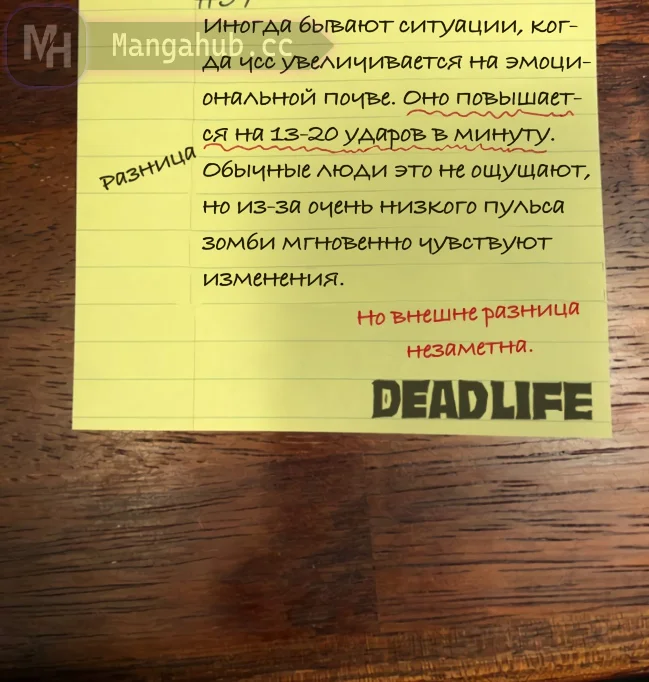 Mangahub.cc
Иногда бывают ситуации, ког-
да чсс увеличивается на эмоци-
ональной почве. Оно повышает-
ся на 13-20 ударов в минуту.
разница
Обычные люди это не ощущают,
но из-за очень низкого пульса
зомби мгновенно чувствуют
изменения.
Но внешне разница
незаметна.
DEADLIFE